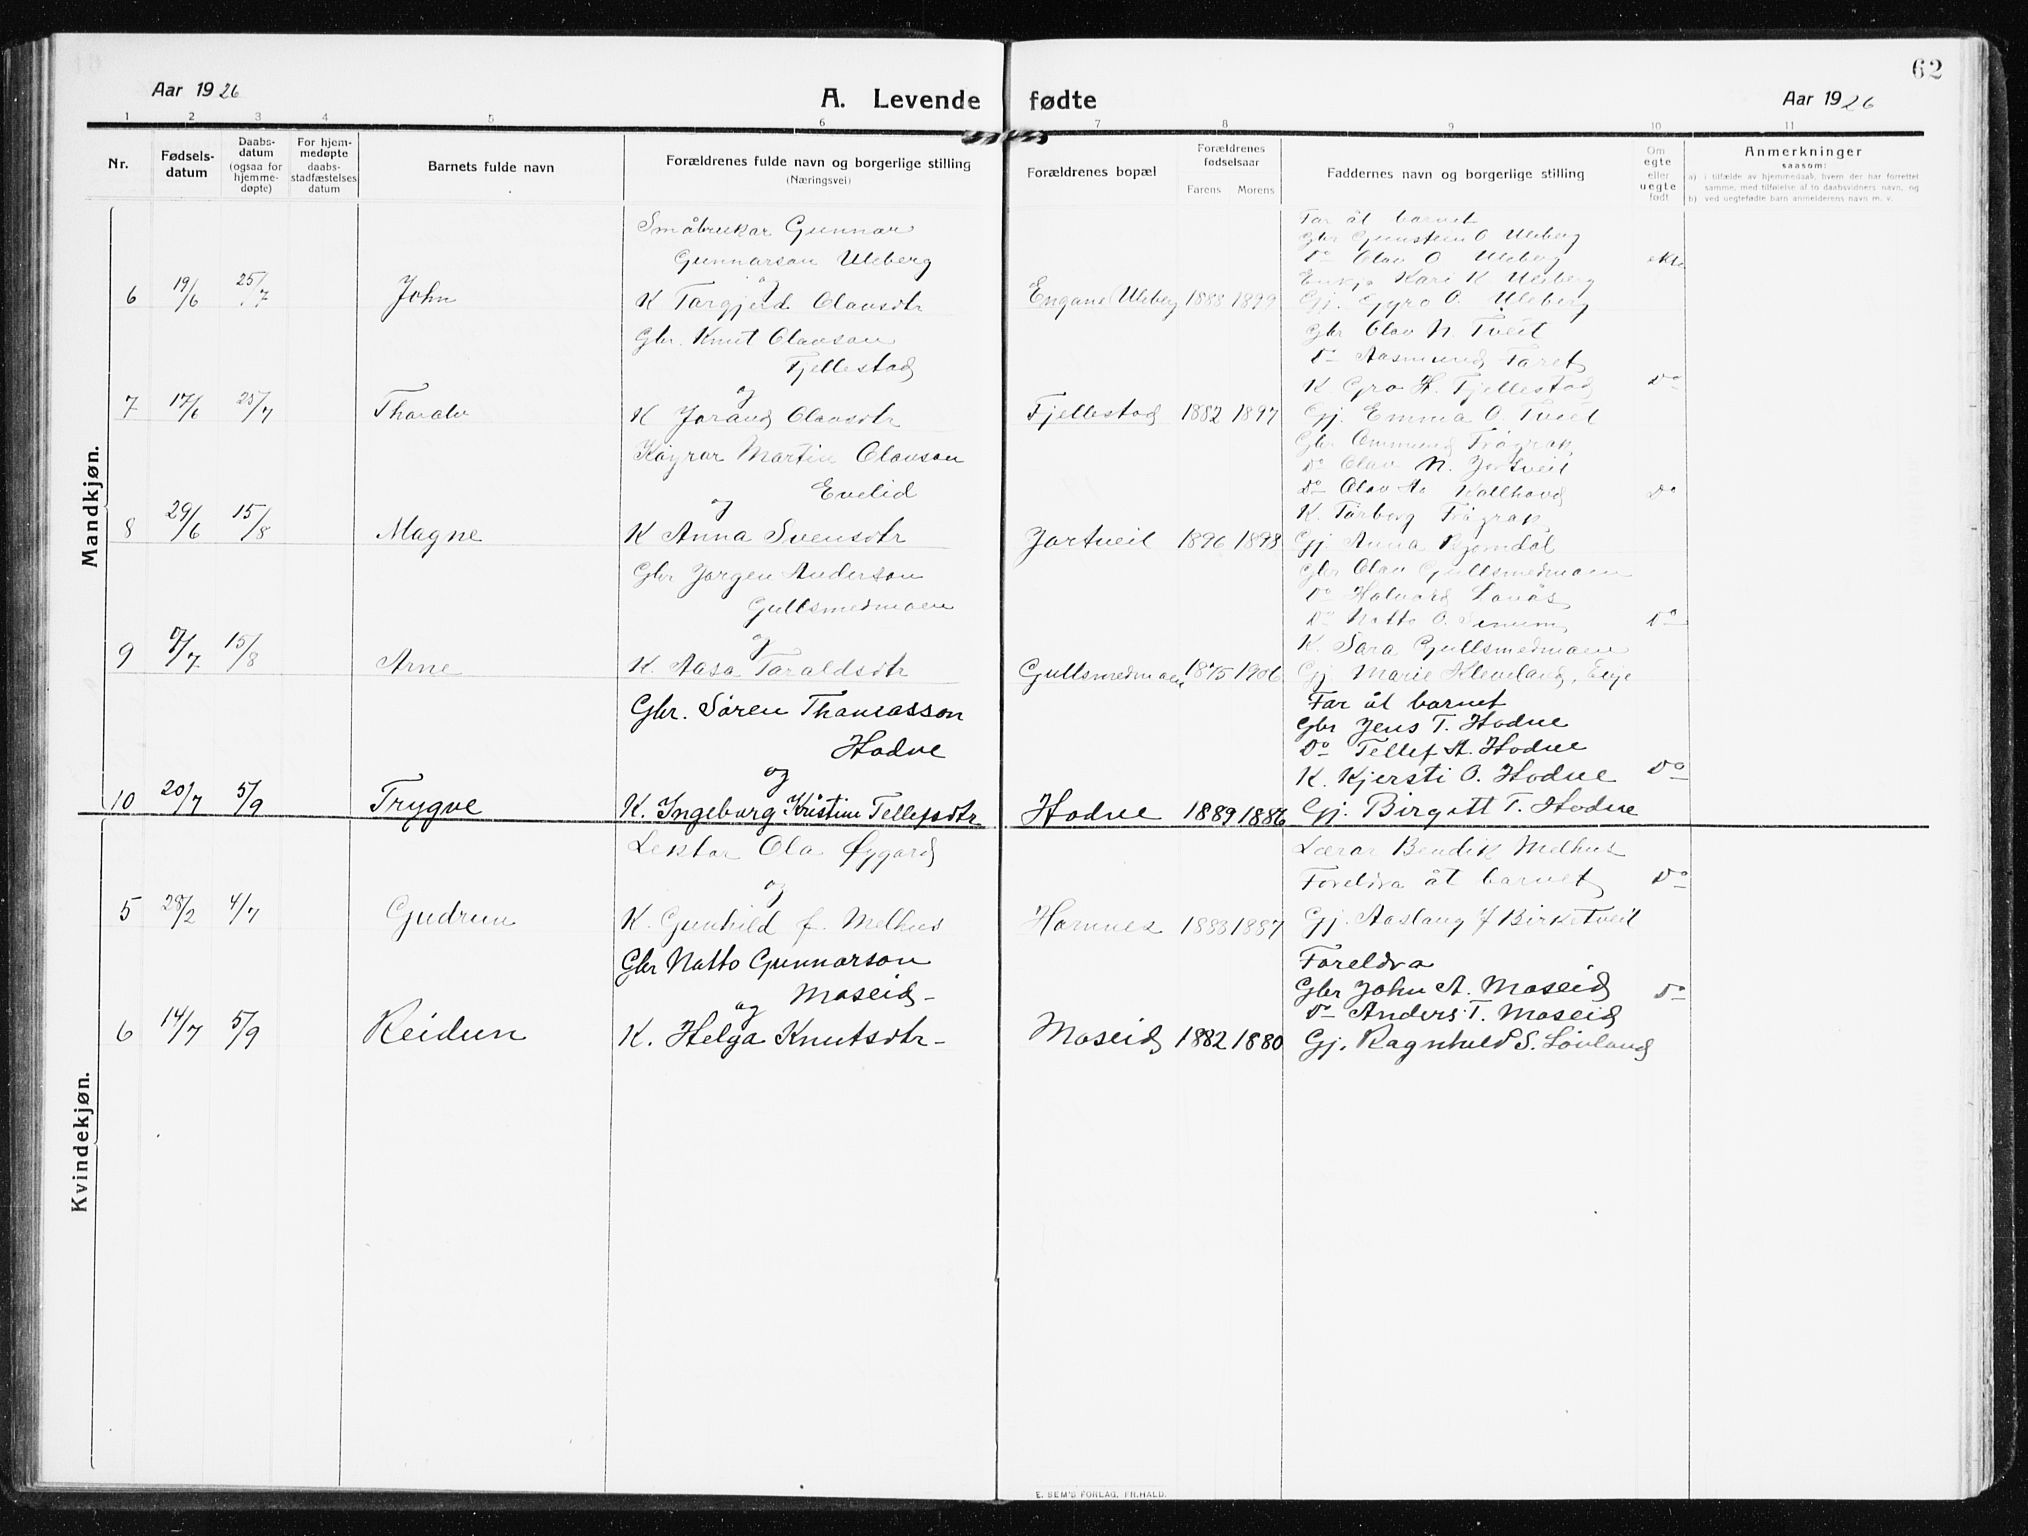 62
Aar 1926
A. Levende fødte
Aar 1926
1 2 3 4 5 6 7 8 9 10 11
Nr.
Fødsels-
datum
Daabs-
datum
(ogsaa for
hjemme-
døpte)
For hjem-
medøpte
daabs-
stadfæstelses
datum
Barnets fulde navn
Forældrenes fulde navn og borgerlige stilling
(Næringsvei)
Forældrenes bopæl
Forældrenes
fødselsaar
Farens Morens
Faddernes navn og borgerlige stilling
Om
egte
eller
uegte
født
Anmerkninger
saasom:
a) i tilfælde av hjemmedaab, hvem der har forrettet
samme, med tilføielse af to daabsvidners navn, og
b) ved uegtefødte barn anmelderens navn m. v.
Mandkjøn.
6 19/6 25/7 John
Småbrukar Gunnar
Gunnarson Uleberg
og
K Targjerd Olavsdtr
Engane Uleberg 1888 1899
Far åt barnet
Gbr Gunstein O Uleberg
Do Olav O Uleberg
Enkja Kari K Uleberg
Gj. Gyro O. Uleberg
ekte
7 17/6 25/7 Thoralv
Gbr. Knut Olavson
Fjellestad
og
K Jorand Olavsdtr
Fjellestad 1882 1897
Gbr Olav N. Tveit
Do Aasmund Faret
K Gro H. Fjellestad
Gj. Emma O. Tveit
Do
8 29/6 15/8 Magne
Køyrar Martin Olavson
Evelid
og
K Anna Svensdtr
Jortveit 1896 1898
Gbr Ommund Frøyrak
Do Olav N. Jortveit
Do Olav Aa Kallhovd
K. Torborg Frøyrak
Gj. Anna Rjomdal
Do
9 7/7 15/8 Arne
Gbr Jørgen Anderson
Gullsmedmoen
og
K. Aasa Taraldsdtr
Gullsmedmoen 1875 1906
Gbr Olav Gullsmedmoen
Do Halvard Lauås
Do Natto O. Senum
K. Sara Gullsmedmoen
Gj. Marie Kleveland, Eige
Do
10 20/7 5/9 Trygve
Gbr. Søren Thomasson
Hodne
og
K. Ingeborg Kristine Tellefsdtr
Hodne 1889 1886
Far åt barnet
Gbr Jens T. Hodne
Do Tellef A. Hodne
K Kjersti O. Hodne
Gj. Birgitt T. Hodne
Do
Kvindekjøn.
5 28/2 4/7 Gudrun
Lektor Ola Øygard
og
K. Gunhild f. Melhus
Hamnes 1888 1887
Lærar Bendik Melhus
Foreldra åt barnet
Gj. Aaslaug J Birketveit
Do
6 14/7 5/9 Reidun
Gbr Natto Gunnarson
Moseid-
og
K. Helga Knutsdtr-
Moseid 1882 1880
Foreldra
Gbr John A. Moseid
Do Anders T. Moseid
Gj. Ragnhild S. Løvland
Do
E. SEM'S FORLAG, FR.HALD.